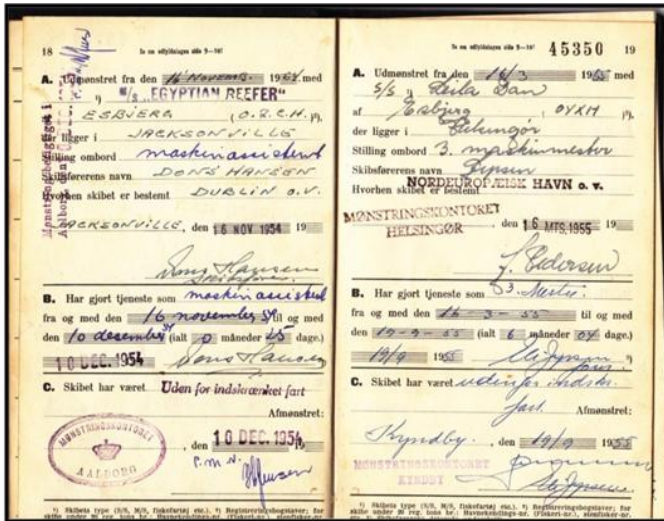 18
Se om udfyldningen side 9—10!
A. Udmønstret fra den 16 Novemb. 1954 med
M/S „EGYPTIAN REEFER"
ESBJERG (O.Z.C.H.)
der ligger i JACKSONVILLE
Stilling ombord maskinassistent
Skibsførerens navn DONS HANSEN
Hvorhen skibet er bestemt DUBLIN O.V.
JACKSONVILLE, den 16 NOV 1954 19
Dons Hansen
B. Har gjort tjeneste som maskinassistent
fra og med den 16 november 54 til og med
den 10 desember 54 (ialt 0 måneder 25 dage.)
10 DEC. 1954 Dons Hansen
C. Skibet har været Uden for indskrænket fart
Afmønstret:
MØNSTRINGSKONTORET
AALBORG
, den 10 DEC. 1954 19
P.M.V.
Mønstringsbehandlet i
Aalborg, den
¹) Skibets type (S/S, M/S, fiskefartøj etc.). ²) Registreringsbogstaver; for
skibe under 20 reg. tons br.: Havnekendings-nr. (Fiskeri-nr.,
Se om udfyldningen side 9—10!
45350 19
A. Udmønstret fra den 16/3 1955 med
S/S ¹) Leila Dan
af Esbjerg (OYXM)²).
der ligger i Helsingør
Stilling ombord 3. maskinmester
Skibsførerens navn Jepsen
Hvorhen skibet er bestemt NORDEUROPÆISK HAVN o. v.
MØNSTRINGSKONTORET
HELSINGØR
, den 16 MTS. 1955 19
Pedersen
B. Har gjort tjeneste som 3. Mester
fra og med den 16-3-55 til og med
den 19-9-55 (ialt 6 måneder 04 dage.)
19/9 1955
C. Skibet har været udenfor indskr.
fart. Afmønstret:
Kyndby, den 19/9 1955
MØNSTRINGSKONTORET
KYNDBY
¹) Skibets type (S/S, M/S, fiskefartøj etc.). ²) Registreringsbogstaver; for
skibe under 20 reg. tons br.: Havnekendings-nr. (Fiskeri-nr.,